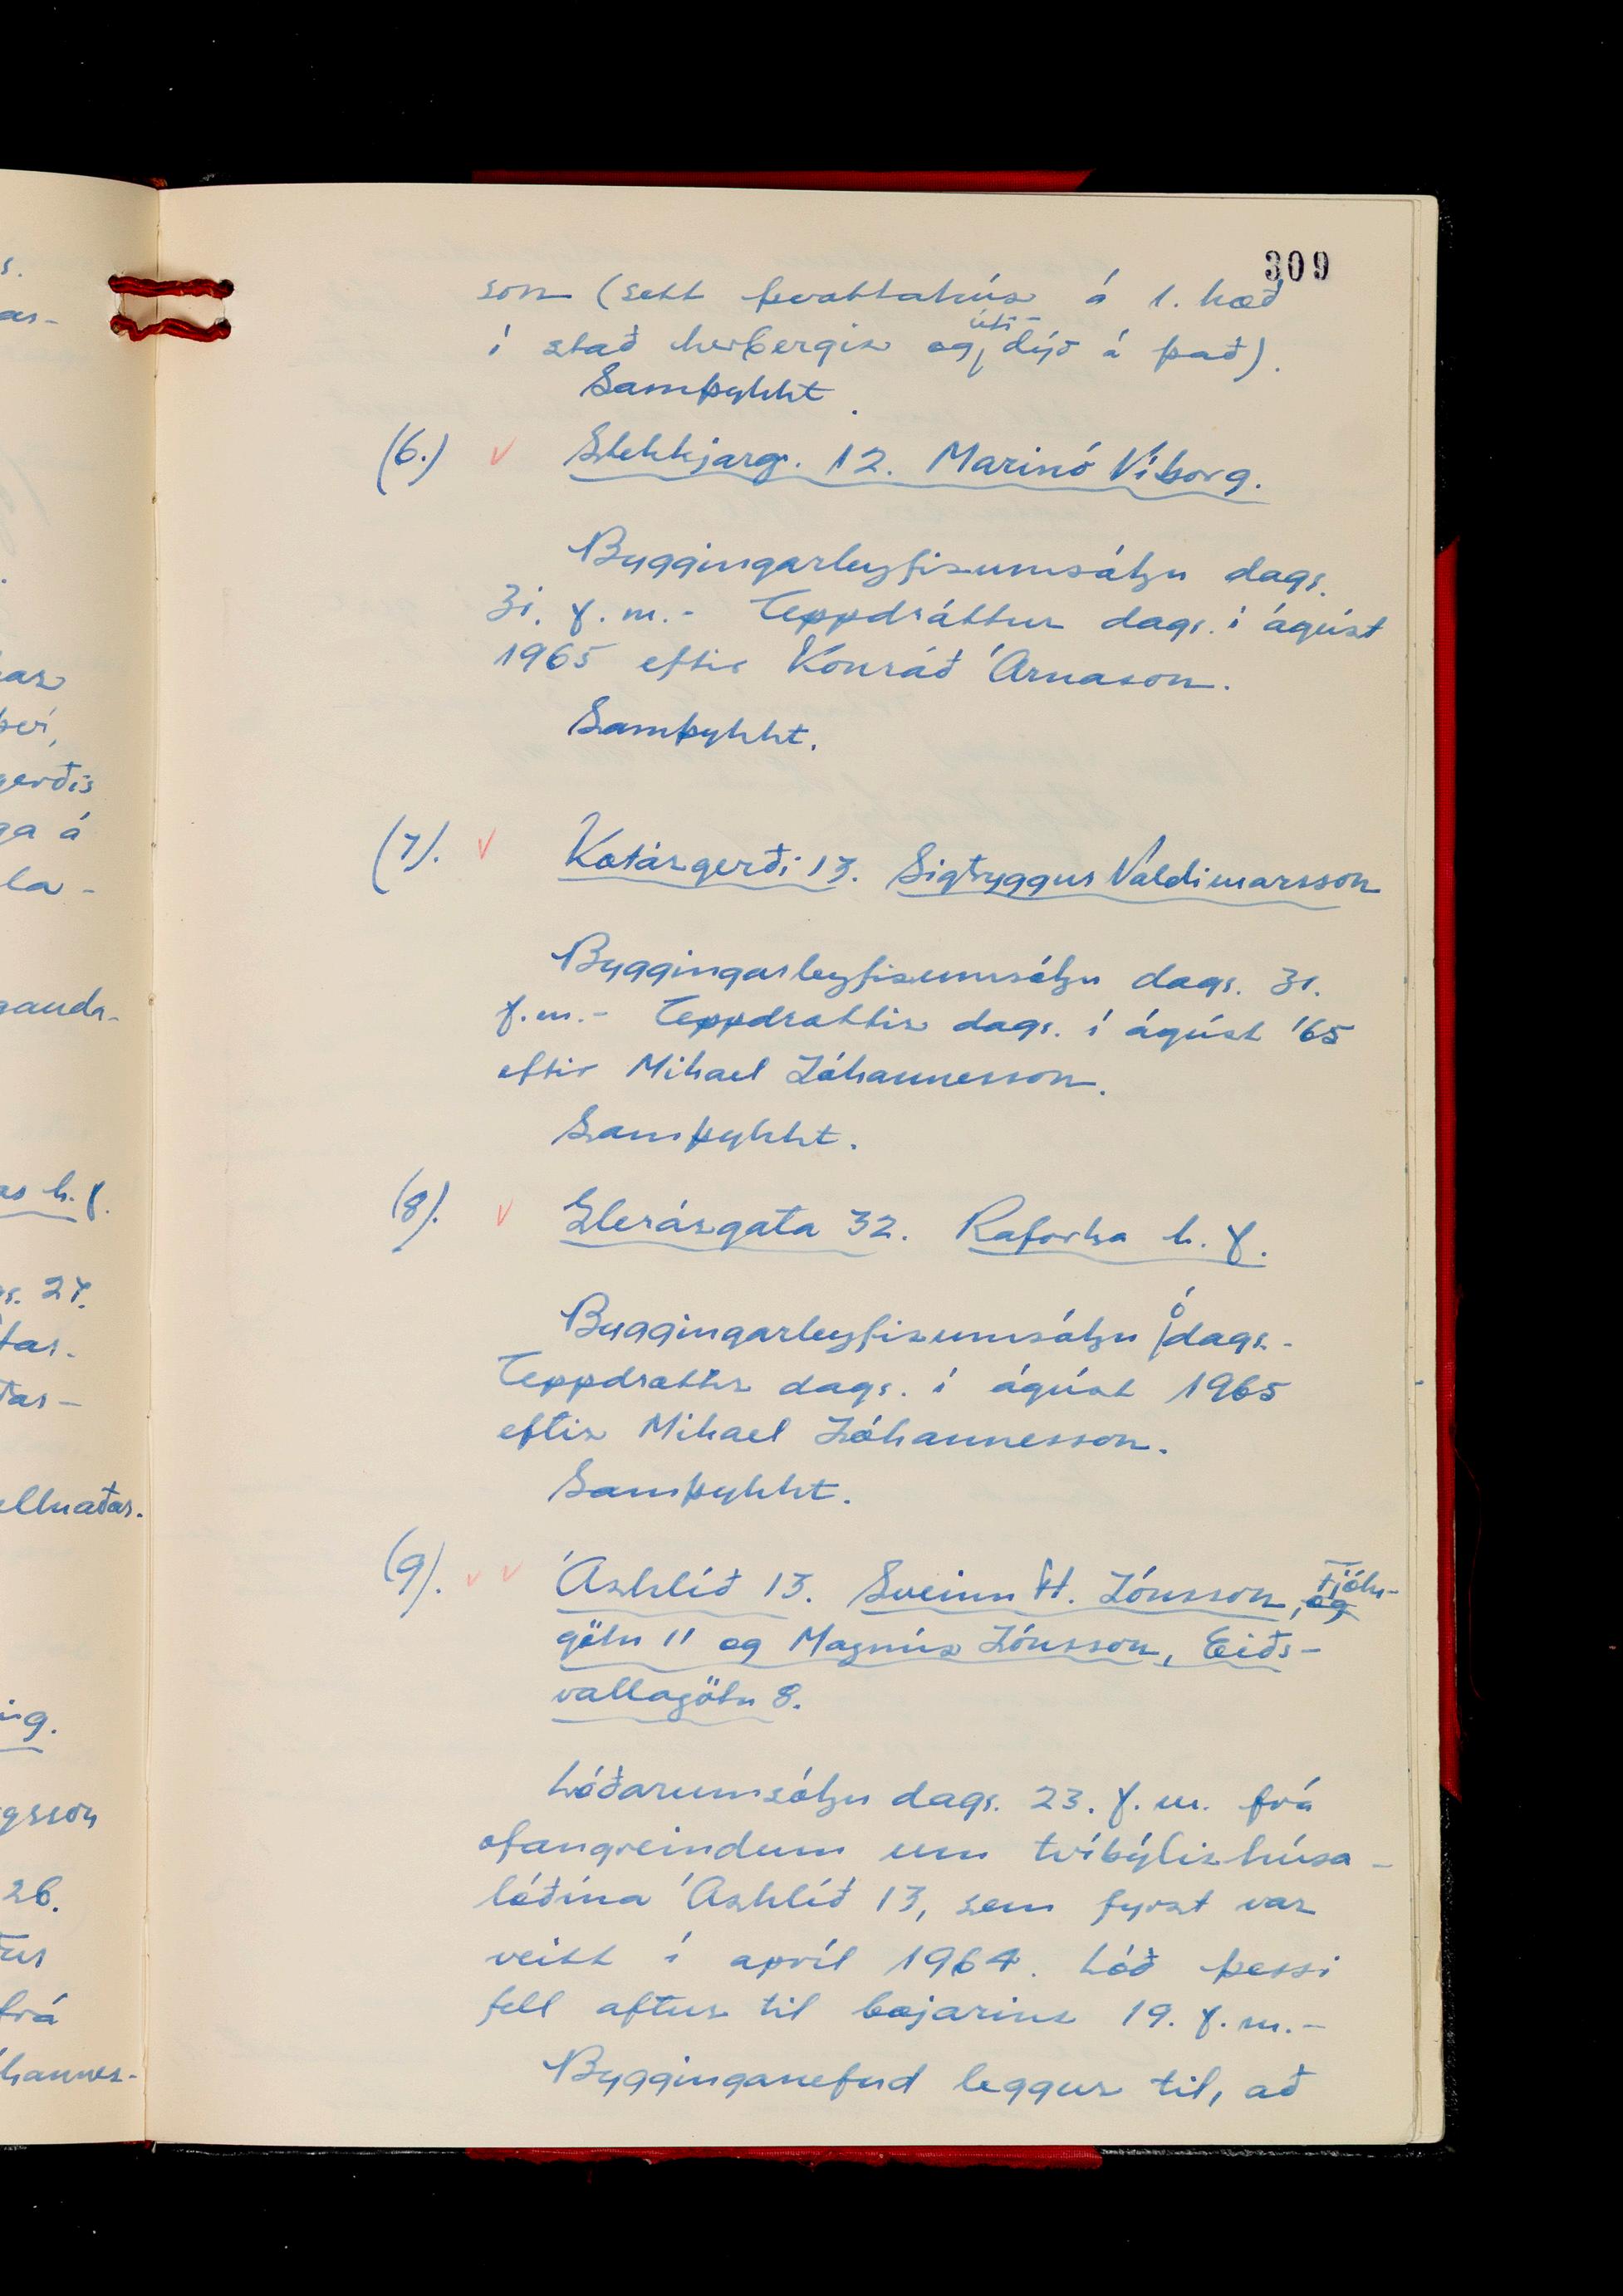 s.
as-
ar
því,
gerðis
ga á
la-
as h.f.
gs. 27.
gsson
26.
frá
hannes-
309
son (sett þvottahús á 1. hæð
í stað herbergis og úti-dyr á það).
Samþykkt.
(6.) v Stekkjarg. 12. Marinó Víborg.
Byggingarleyfisumsókn dags.
31. f.m.- Uppdráttur dags. í ágúst
1965 eftir Konráð Árnason.
Samþykkt.
(7). v Kotárgerði 13. Sigtryggur Valdimarsson
Byggingarleyfisumsókn dags. 31.
f.m.- Uppdrættir dags. í ágúst '65
eftir Mikael Jóhannesson.
Samþykkt.
(8). v Glerárgata 32. Raforka h.f.
Byggingarleyfisumsókn ódags.-
Uppdrættir dags. í ágúst 1965
eftir Mikael Jóhannesson.
Samþykkt.
(9). v v Áshlíð 13. Sveinn H. Jónsson, og Fjólu-
götu 11 og Magnús Jónsson, Eiðs-
vallagötu 8.
Lóðarumsókn dags. 23. f.m. frá
ofangreindum um tvíbýlishúsa-
lóðina Áshlíð 13, sem fyrst var
veitt í apríl 1964. Lóð þessi
fell aftur til bæjarins 19. f.m.-
Bygginganefnd leggur til, að